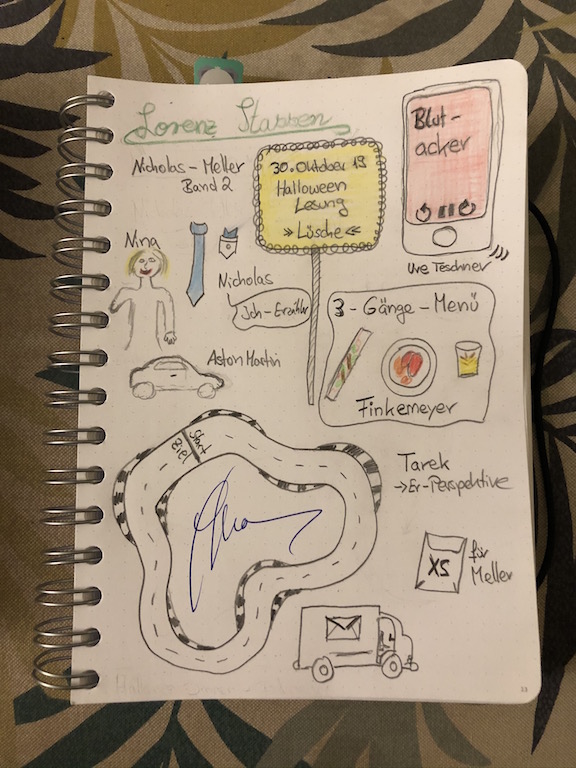 Lorenz Stassen
Nicholas-Meller
Band 2
30. Oktober 19
Halloween
Lesung
»Lüsche«
Blut-
acker
Uwe Teschner
Nina
Nicholas
Ich-Erzähler
Aston Martin
3-Gänge-Menü
Finkemeyer
Start
Ziel
Tarek
→Er-Perspektive
XS
für
Meller
33